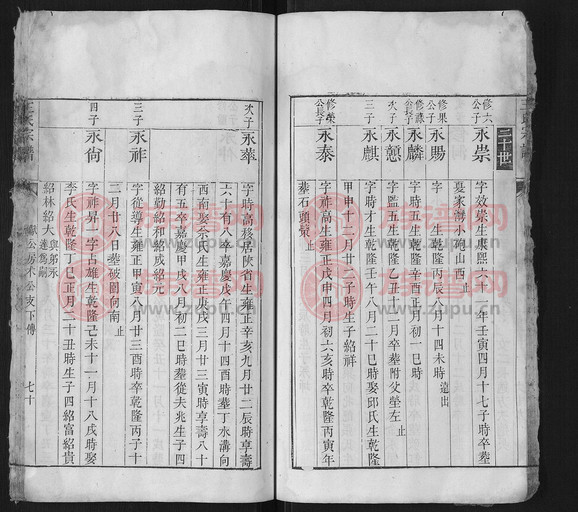 三十世
修六公子 永祟 字效崇生康熙六十一年壬寅四月十七子時卒葬
夏家瀞小砲山西止
修果公子 永賜 字 生乾隆丙辰八月十四未時遠出
修諫公長子 永麟 字時五生乾隆辛酉正月初一巳時
次子 永憲 字監五生乾隆乙丑十二月卒葬附父塋左止
三子 永麒 字時才生乾隆壬午八月二十巳時娶邱氏生乾隆
甲申十二月廿二子時生子紹祥
修榮公長子 永泰 字祚高生雍正戊申四月初六亥時卒乾隆丙寅年
葬石頭 止
次子 永華 字時高移居陝省生雍正辛亥九月廿二辰時享壽
六十有八卒嘉慶戊午四月十四酉時葬丁水溝向
西南娶余氏生雍正庚戌三月廿三寅時享壽八十
有五卒嘉慶甲戌八月初二巳時葬從夫兆生子四
紹勛紹和紹成紹元
三子 永祚 字從導生雍正甲寅八月廿三酉時卒乾隆丙子十
二月廿八日葬破圖向南止
四子 永尙 字祚昇一字占雄生乾隆己未十一月十八戌時娶
李氏生乾隆丁巳正月三十丑時生子四紹富紹貴
紹林紹大與弟永蓬爲嗣
王氏宗譜
公房木公支下傳
七十
王氏宗譜
古譜网
www.zupu.cn